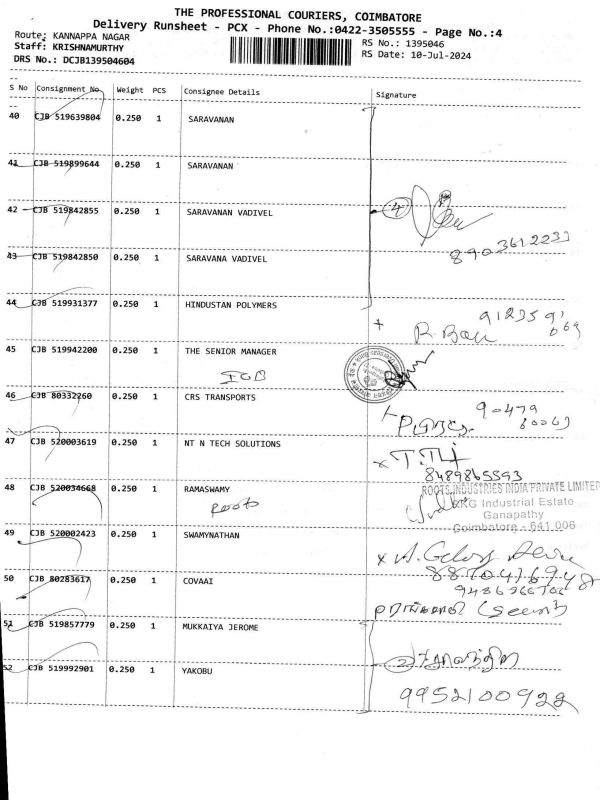 THE PROFESSIONAL COURIERS, COIMBATORE
Delivery Runsheet - PCX - Phone No.:0422-3505555 - Page No.:4
Route: KANNAPPA NAGAR
RS No.: 1395046
Staff: KRISHNAMURTHY
RS Date: 10-Jul-2024
DRS No.: DCJB139504604
S No Consignment No Weight PCS Consignee Details Signature
40 CJB 519639804 0.250 1 SARAVANAN
41 CJB 519899644 0.250 1 SARAVANAN
42 CJB 519842855 0.250 1 SARAVANAN VADIVEL
4
8903612233
43 CJB 519842850 0.250 1 SARAVANA VADIVEL
44 CJB 519931377 0.250 1 HINDUSTAN POLYMERS
45 CJB 519942200 0.250 1 THE SENIOR MANAGER
46 CJB 80332260 0.250 1 CRS TRANSPORTS
47 CJB 520003619 0.250 1 NT N TECH SOLUTIONS
8489865593
48 CJB 520034668 0.250 1 RAMASWAMY
Roots
ROOTS INDUSTRIES INDIA PRIVATE LIMITED
RKG Industrial Estate
Ganapathy
Coimbatore - 641 006
49 CJB 520002423 0.250 1 SWAMYNATHAN
50 CJB 80283617 0.250 1 COVAAI
51 CJB 519857779 0.250 1 MUKKAIYA JEROME
2
52 CJB 519992901 0.250 1 YAKOBU
9952100922